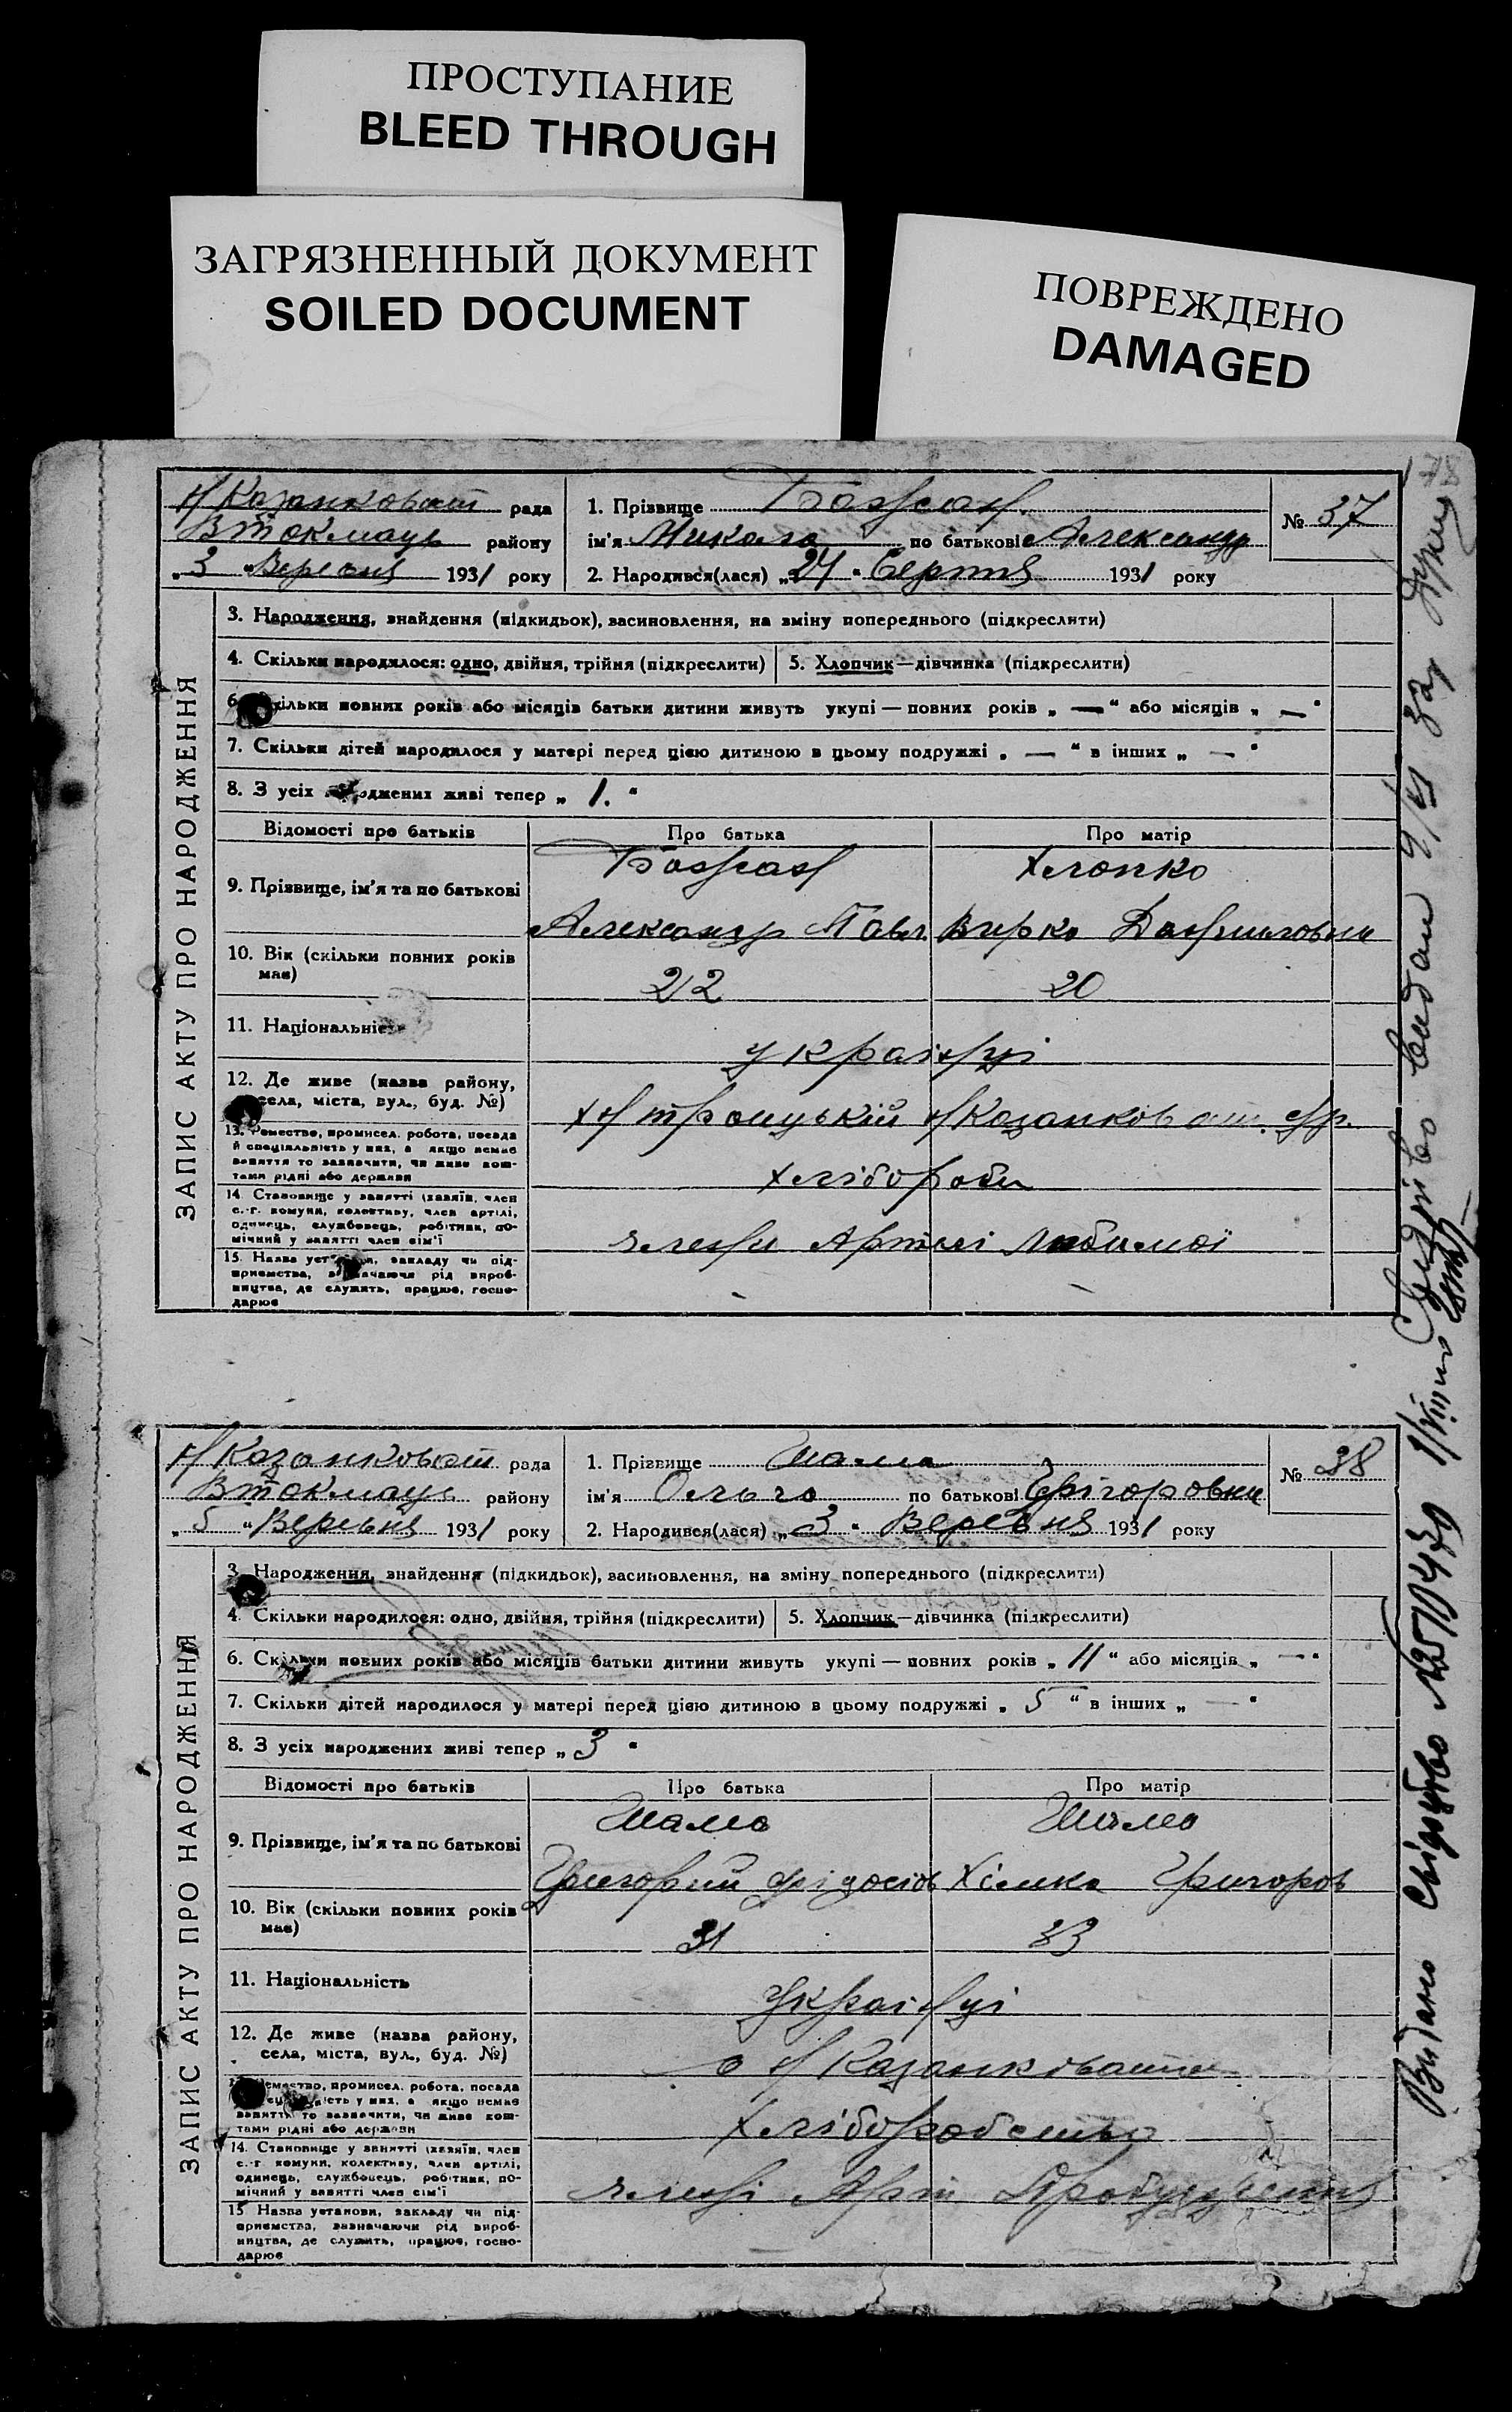 ПРОСТУПАНИЕ
BLEED THROUGH
ЗАГРЯЗНЕННЫЙ ДОКУМЕНТ
SOILED DOCUMENT
ПОВРЕЖДЕНО
DAMAGED
178
Н/Казанковат рада
ВТокмаць району
„3“ Вересня 1931 року
1. Прізвище
ім'я Микола по батькові Александр
2. Народився(лася) „24“ Серпня 1931 року
№ 37
ЗАПИС АКТУ ПРО НАРОДЖЕННЯ
3. Народження, знайдення (підкидьок), засиновлення, на зміну попереднього (підкреслити)
4. Скільки народилося: одно, двійня, трійня (підкреслити) 5. Хлопчик—дівчинка (підкреслити)
6. Скільки повних років або місяців батьки дитини живуть укупі — повних років „ — “ або місяців „ — “
7. Скільки дітей народилося у матері перед цією дитиною в цьому подружжі „ — “ в інших „ — “
8. З усіх народжених живі тепер „ 1. “
Відомості про батьків Про батька Про матір
9. Прізвище, ім'я та по батькові Хлопко
Александр Павл Вирка Даниловна
10. Вік (скільки повних років має) 22 20
11. Національність українці
12. Де живе (назва району, села, міста, вул., буд. №) х Н Троицькій Н/Казанковат. с/р.
13. Ремество, промисел, робота, посада й спеціяльність у них, а якщо немає заняття то зазначити, чи живе коштами рідні або держави хлібороби
14. Становище у занятті (хазяїн, член с.-г. комуни, колективу, член артілі, одинець, службовець, робітник, помічний у занятті член сім'ї члени Артілі
15. Назва установи, закладу чи підприємства, зазначаючи рід виробництва, де служить, працює, господарює
Н/Казанковат рада
ВТокмаць району
„5“ Вересьня 1931 року
1. Прізвище Шамо
ім'я Ольга по батькові Грігоровна
2. Народився(лася) „3“ Вересьня 1931 року
№ 38
ЗАПИС АКТУ ПРО НАРОДЖЕННЯ
3. Народження, знайдення (підкидьок), засиновлення, на зміну попереднього (підкреслити)
4. Скільки народилося: одно, двійня, трійня (підкреслити) 5. Хлопчик—дівчинка (підкреслити)
6. Скільки повних років або місяців батьки дитини живуть укупі — повних років „ 11 “ або місяців „ — “
7. Скільки дітей народилося у матері перед цією дитиною в цьому подружжі „ 5 “ в інших „ — “
8. З усіх народжених живі тепер „ 3 “
Відомості про батьків Про батька Про матір
9. Прізвище, ім'я та по батькові Шамо Шамо
Григорий Хімка Григоров
10. Вік (скільки повних років має) 31 33
11. Національність Українці
12. Де живе (назва району, села, міста, вул., буд. №) с Н/Казанковати
13. Ремество, промисел, робота, посада й спеціяльність у них, а якщо немає заняття то зазначити, чи живе коштами рідні або держави Хліборобство
14. Становище у занятті (хазяїн, член с.-г. комуни, колективу, член артілі, одинець, службовець, робітник, помічний у занятті член сім'ї члені Арт
15. Назва установи, закладу чи підприємства, зазначаючи рід виробництва, де служить, працює, господарює
Видано Свідоцтво